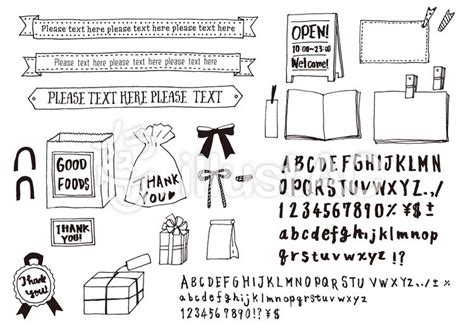 Please text here please text here
Please text here please text here
PLEASE TEXT HERE PLEASE TEXT
OPEN!
10:00~23:00
Welcome!
GOOD
FOODS
THANK
YOU
THANK
YOU!
Thank
You!
ABCDEFGHIJKLMN
OPQRSTUVWXYZ.,/
1234567890!?¥$±
abcdefghijklmnopqr
stuvwxyz
ABCDEFGHIJKLMNOPQRSTUVWXYZ.,
abcdefghijklmnopqrstuvwxyz
1234567890!?¥$